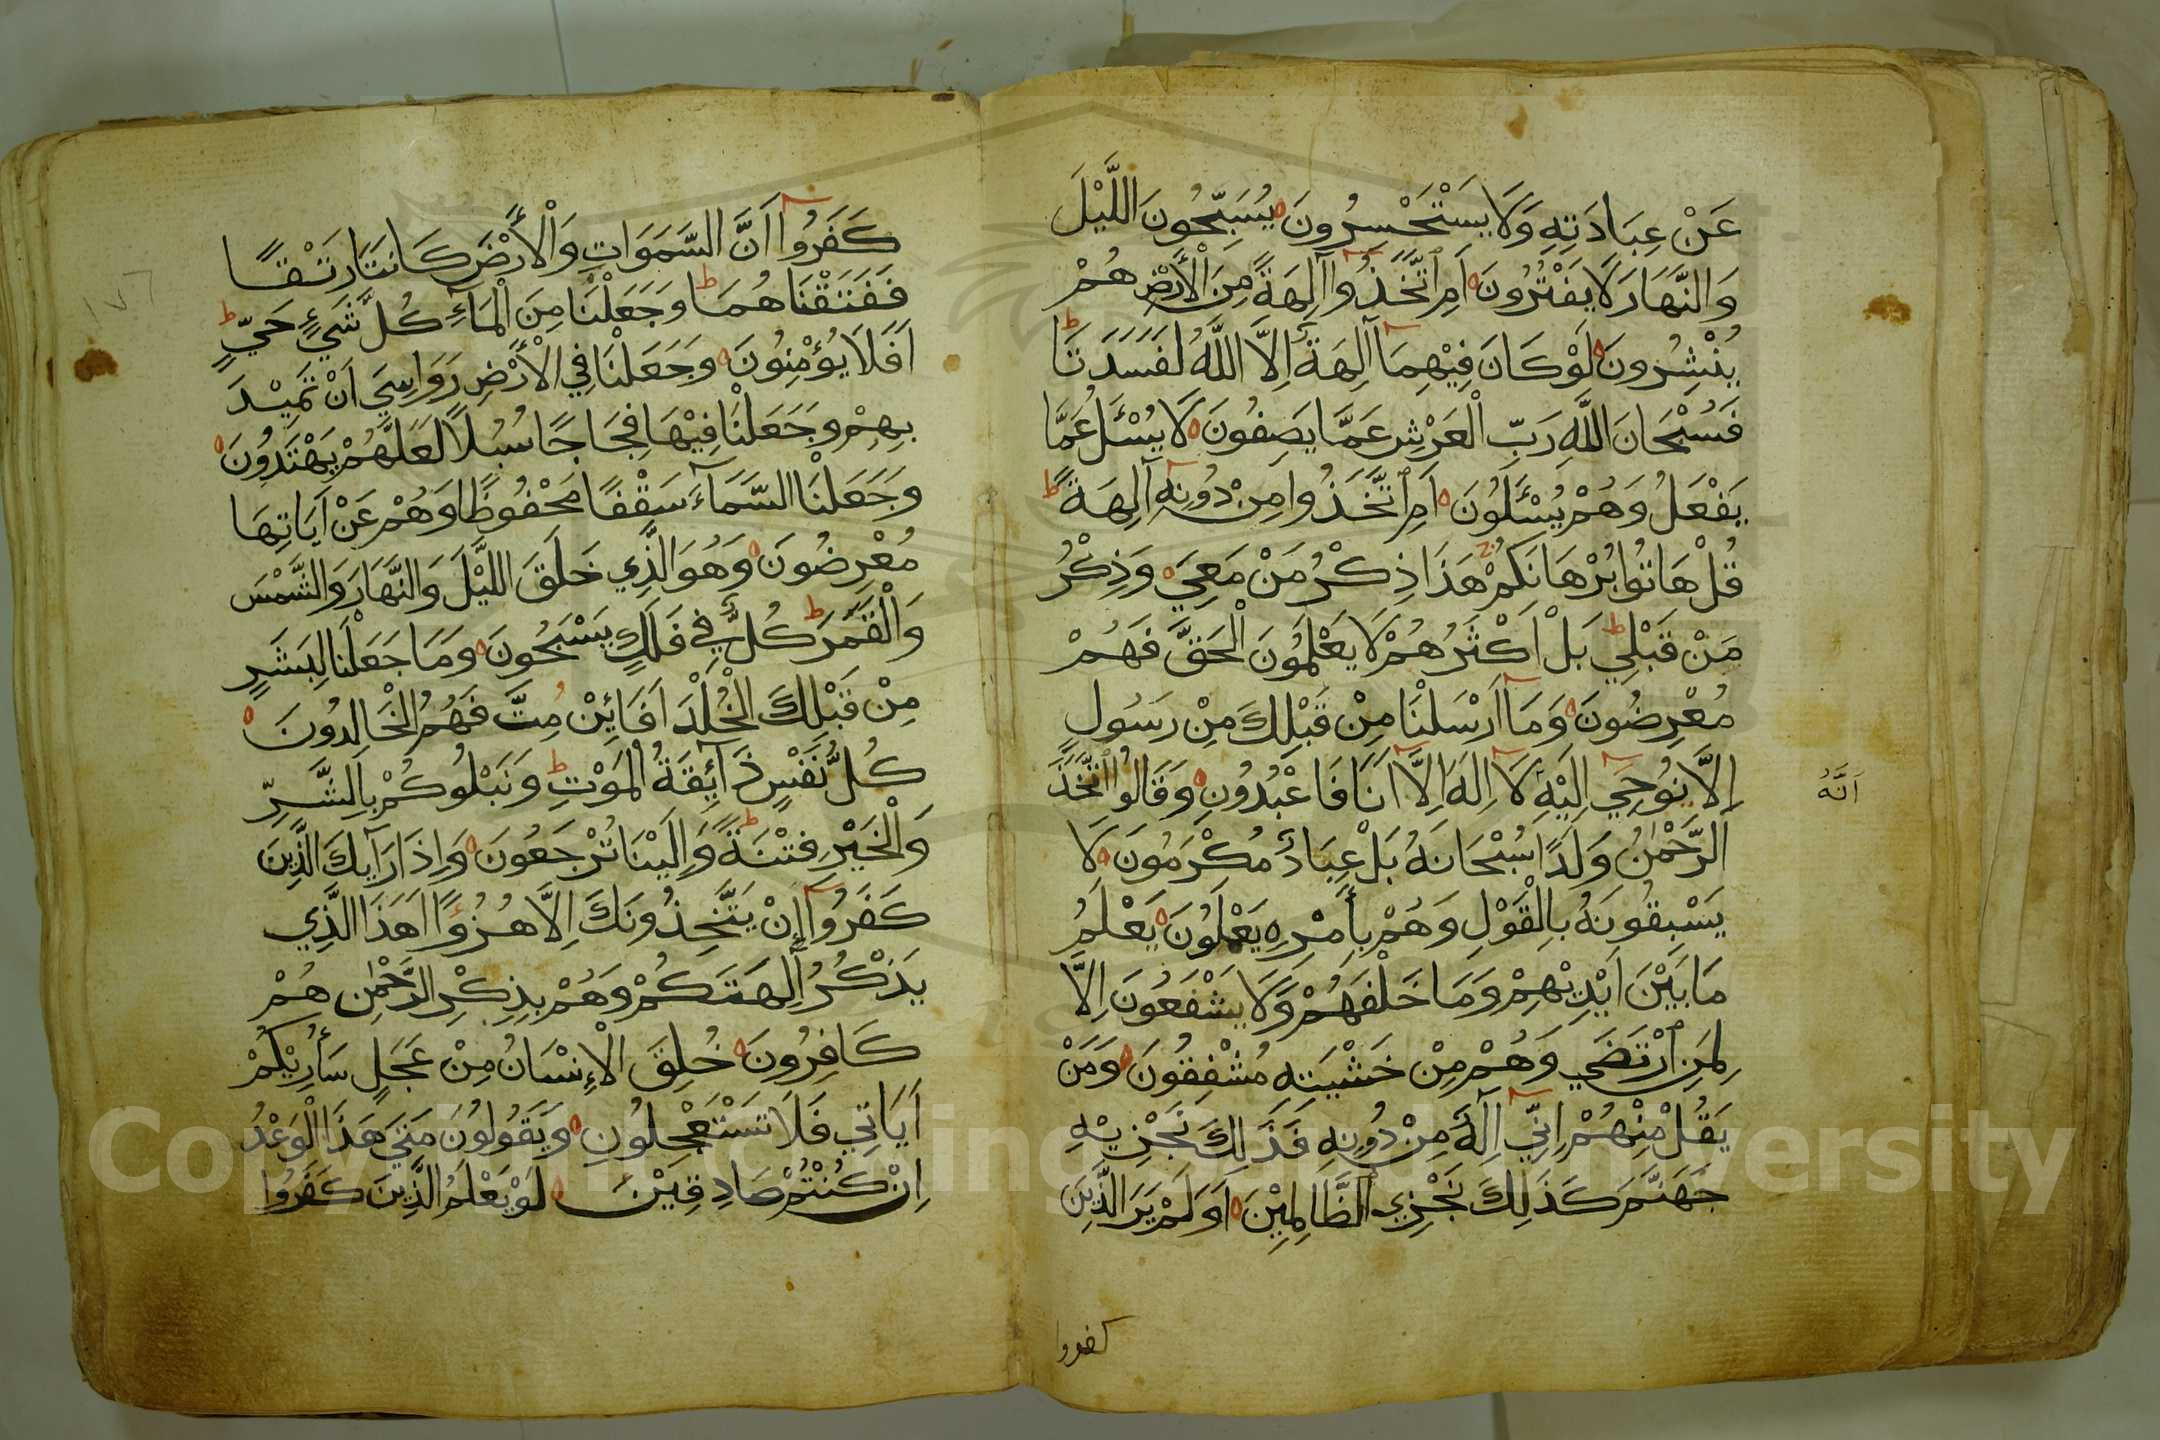 عَنْ عِبَادَتِهِ وَلَا يَسْتَحْسِرُونَ يُسَبِّحُونَ اللَّيْلَ
وَالنَّهَارَ لَا يَفْتُرُونَ اَمِ ٱتَّخَذُوا آلِهَةً مِنَ الْأَرْضِ هُمْ
يُنْشِرُونَ لَوْ كَانَ فِيْهِمَا آلِهَةٌ اِلَّا اللَّهُ لَفَسَدَتَا
فَسُبْحَانَ اللَّهِ رَبِّ الْعَرْشِ عَمَّا يَصِفُونَ لَا يُسْـَٔلُ عَمَّا
يَفْعَلُ وَهُمْ يُسْـَٔلُونَ اَمِ ٱتَّخَذُوا مِنْ دُونِهِ آلِهَةً
قُلْ هَاتُوا بُرْهَانَكُمْ هَذَا ذِكْرُ مَنْ مَعِيَ وَذِكْرُ
مَنْ قَبْلِي بَلْ اَكْثَرُهُمْ لَا يَعْلَمُونَ الْحَقَّ فَهُمْ
مُعْرِضُونَ وَمَا اَرْسَلْنَا مِنْ قَبْلِكَ مِنْ رَسُولٍ
اِلَّا نُوحِي اِلَيْهِ لَا اِلَهَ اِلَّا اَنَا فَاعْبُدُونِ وَقَالُوا ٱتَّخَذَ
اَنَّهُ
الرَّحْمٰنُ وَلَدًا سُبْحَانَهُ بَلْ عِبَادٌ مُكْرَمُونَ لَا
يَسْبِقُونَهُ بِالْقَوْلِ وَهُمْ بِأَمْرِهِ يَعْمَلُونَ يَعْلَمُ
مَا بَيْنَ اَيْدِيْهِمْ وَمَا خَلْفَهُمْ وَلَا يَشْفَعُونَ اِلَّا
لِمَنِ ٱرْتَضَي وَهُمْ مِنْ خَشْيَتِهِ مُشْفِقُونَ وَمَنْ
يَقُلْ مِنْهُمْ اِنِّي اِلَهٌ مِنْ دُونِهِ فَذَلِكَ نَجْزِيْهِ
جَهَنَّمَ كَذَلِكَ نَجْزِي الظَّالِمِيْنَ اَوَلَمْ يَرَ الَّذِينَ
كفروا
كَفَرُوا اَنَّ السَّمَوَاتِ وَالْأَرْضَ كَانَتَا رَتْقًا
فَفَتَقْنَاهُمَا وَجَعَلْنَا مِنَ الْمَآءِ كُلَّ شَيْءٍ حَيٍّ
اَفَلَا يُؤْمِنُونَ وَجَعَلْنَا فِي الْأَرْضِ رَوَاسِيَ اَنْ تَمِيْدَ
بِهِمْ وَجَعَلْنَا فِيْهَا فِجَاجًا سُبُلًا لَعَلَّهُمْ يَهْتَدُونَ
وَجَعَلْنَا السَّمَآءَ سَقْفًا مَحْفُوظًا وَهُمْ عَنْ اَيَاتِهَا
مُعْرِضُونَ وَهُوَ الَّذِي خَلَقَ اللَّيْلَ وَالنَّهَارَ وَالشَّمْسَ
وَالْقَمَرَ كُلٌّ فِي فَلَكٍ يَسْبَحُونَ وَمَا جَعَلْنَا لِبَشَرٍ
مِنْ قَبْلِكَ الْخُلْدَ اَفَائِنْ مُتَّ فَهُمُ الْخَالِدُونَ
كُلُّ نَفْسٍ ذَآئِقَةُ الْمَوْتِ وَنَبْلُوكُمْ بِالشَّرِّ
وَالْخَيْرِ فِتْنَةً وَاِلَيْنَا تُرْجَعُونَ وَاِذَا رَآيكَ الَّذِينَ
كَفَرُوا اِنْ يَتَّخِذُونَكَ اِلَّا هُزُؤًا اَهَذَا الَّذِي
يَذْكُرُ آلِهَتَكُمْ وَهُمْ بِذِكْرِ الرَّحْمٰنِ هُمْ
كَافِرُونَ خُلِقَ الْاِنْسَانُ مِنْ عَجَلٍ سَأُرِيْكُمْ
اَيَاتِي فَلَا تَسْتَعْجِلُونِ وَيَقُولُونَ مَتَي هَذَا الْوَعْدُ
اِنْ كُنْتُمْ صَادِقِيْنَ لَوْ يَعْلَمُ الَّذِينَ كَفَرُوا
١٧٦